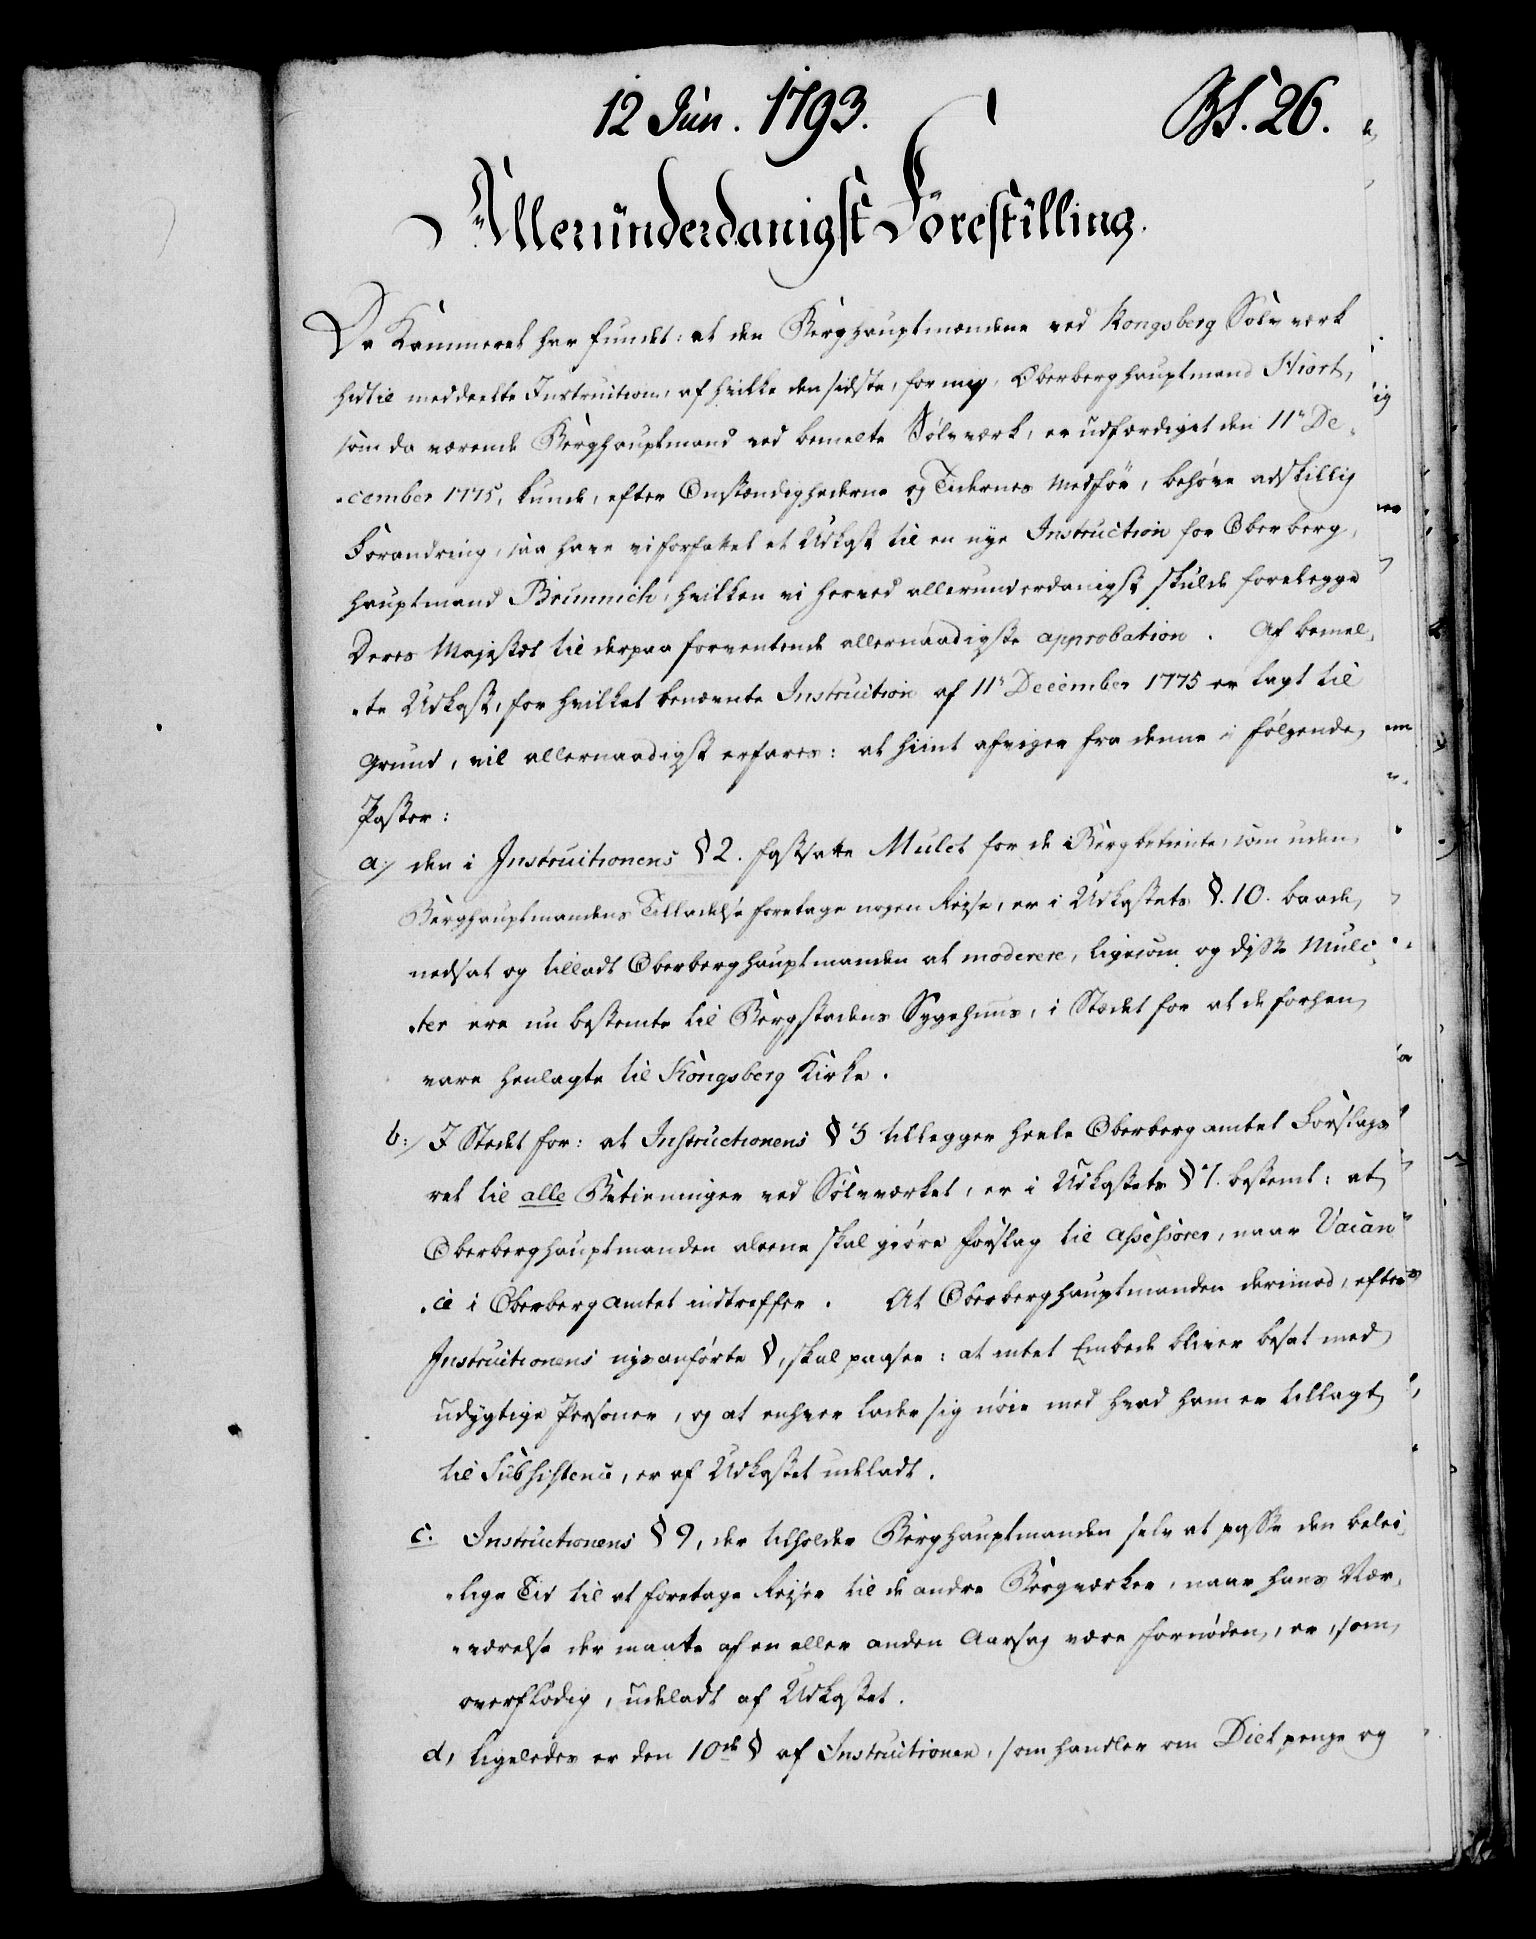 12 Jun. 1793. Bf. 26.
Allerunderdanigst Forestilling.
Da Kammeret har fundet: at den Berghauptmændene ved Kongsberg Sölv værk
hidtil meddeelte Instruction, af hvilke den sidste, for mig, Oberberghauptmand Hiort,
som da værende Berghauptmand ved bemelte Sölvværk, er udfærdiget den 11te De-
cember 1775, kunde, efter Omstændighederne og Tidernes Medför, behöve adskillig
Forandring, saa have vi forfattet et Udkast til en nye Instruction for Oberberg-
hauptmand Brünnich, hvilken vi herved allerunderdanigst skulde forelegge
Deres Majestæt til derpaa forventende allernaadigste approbation. Af bemel-
te Udkast, for hvilket benævnte Instruction af 11te December 1775 er lagt til
Grund, vil allernaadigst erfares: at hiint afviger fra denne i fölgende
Poster:
a) den i Instructionens § 2. fastsatte Mulct for de Bergbetiente, som uden
Berghauptmandens Tilladelse foretage nogen Reise, er i Udkastets §. 10. baade
nedsat og tilladt Oberberghauptmanden at moderere, ligesom og disse Mulc-
ter ere nu bestemte til Bergstadens Sygehuus, i Stædet for at de forhen
vare henlagte til Kongsberg Kirke.
b:/ I Stedet for: at Instructionens § 3 tillegger heele Oberbergamtet Forslags
ret til alle Betieninger ved Sölvværket, er i Udkastets § 7. bestemt: at
Oberberghauptmanden alene skal giöre Forslag til Assessorer, naar Vacan-
ce i Oberbergamtet indtreffer. At Oberberghauptmanden derimod, efter
Instructionens nysanförte §, skal paasee: at intet Embede bliver besat med
udygtige Personer, og at enhver lader sig nöie med hvad ham er tillagt
til Subsistence, er af Udkastet udeladt.
c. Instructionens § 9, der tilholder Berghauptmanden selv at passe den belei-
lige Tid til at foretage Reiser til de andre Bergværker, naar hans Nær-
værelse der maatte af en eller anden Aarsag være fornöden, er, som
overflödig, udeladt af Udkastet.
d, Ligeledes er den 10de § af Instructionen, som handler om Diet penge og